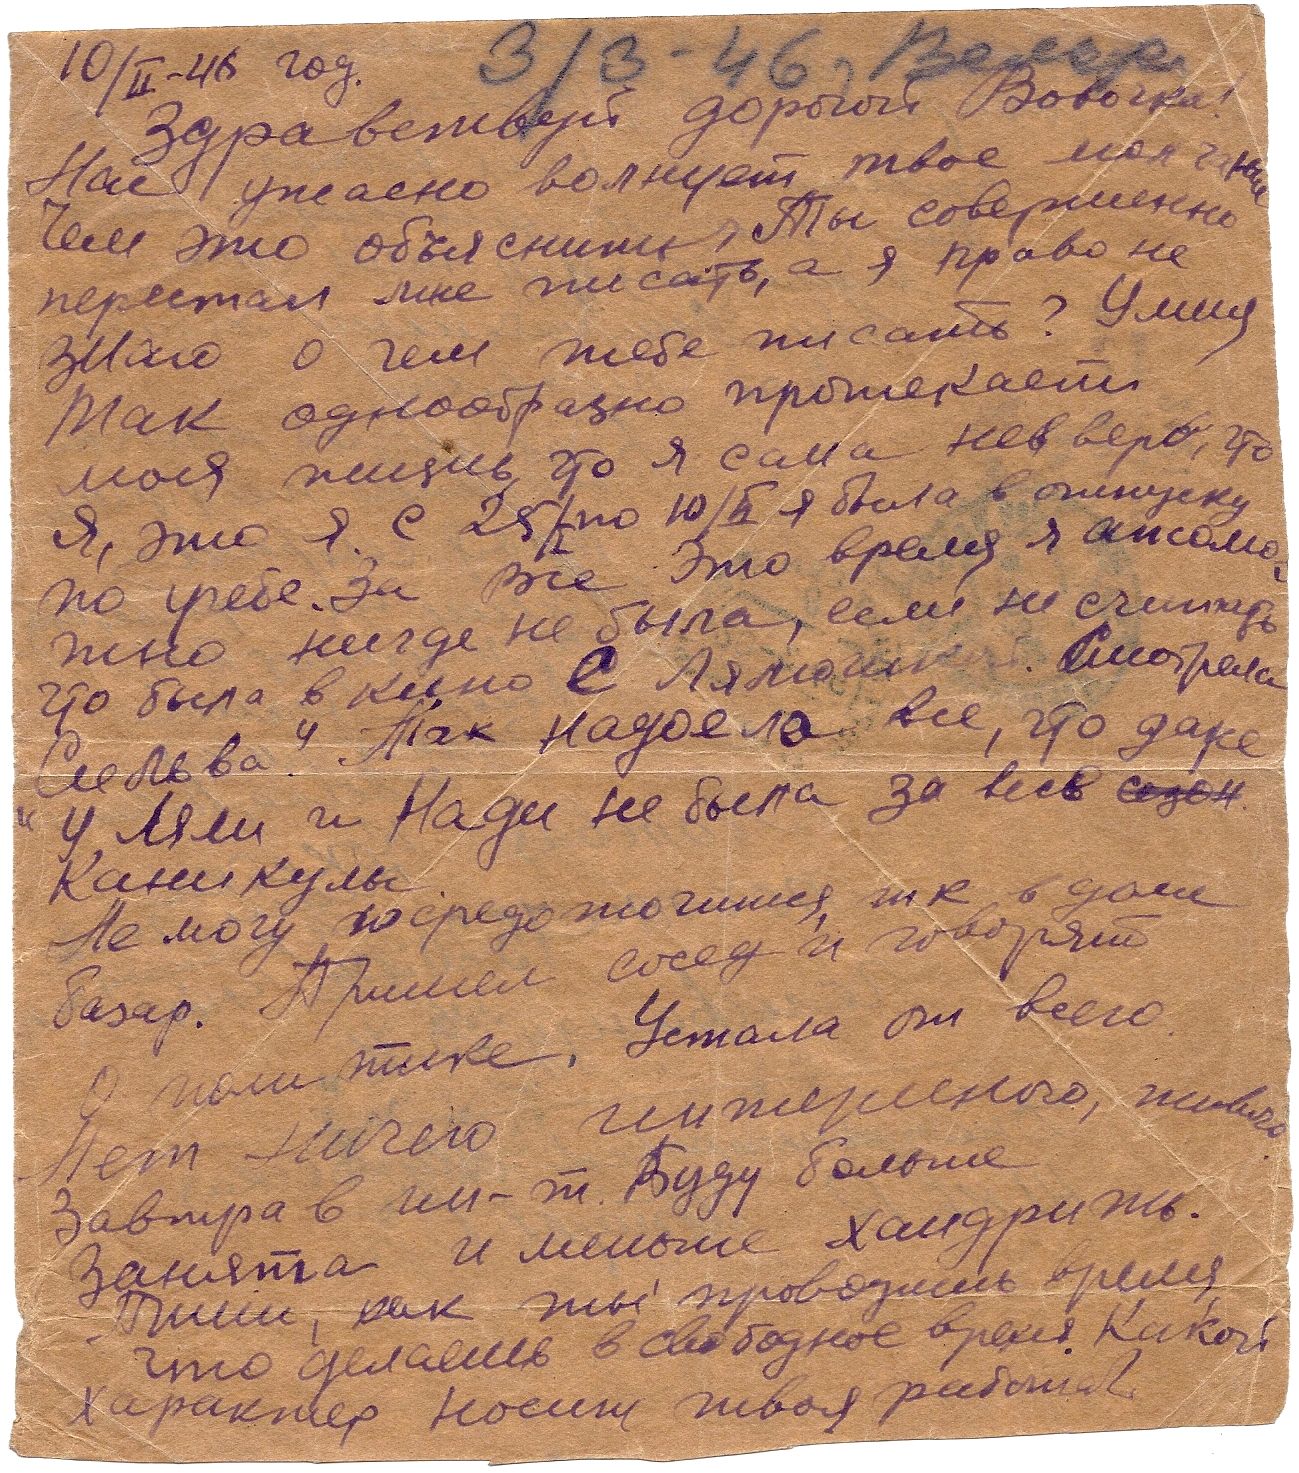 10/II-46 год.
3/3-46,
Здравствуй дорогой Вовочка!
Нас ужасно волнует твое молчание
Чем это объяснить, Ты совершенно
перестал мне писать, а я право не
знаю о чем тебе писать? У меня
так однообразно протекает
моя жизнь, что я сама не верю, что
я, это я. С 25/I по 10/II я была в отпуску
по учебе. За все это время я
нигде не была, если не считать
что была в кино с Лялюшкой. Смотрела
Сильва". Так надоело все, что даже
у Ляли и Нади не была за все сезон
каникулы.
Не могу сосредоточится, т к в доме
базар. Пришел сосед и говорят
о политике. Устала от всего.
Нет ничего интересного, живого
Завтра в ин-т. Буду больше
занята и меньше хандрить.
Пиши, как ты проводишь время
что делаешь в свободное время. Какой
характер носит твоя работа?